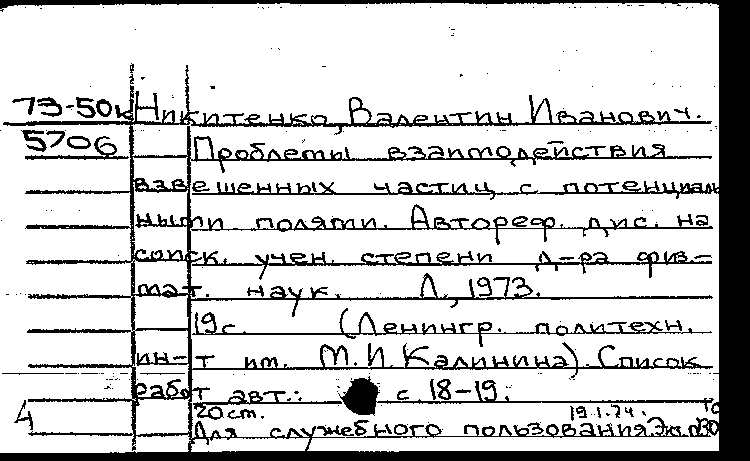 73-50к Никитенко, Валентин Иванович.
5706 Проблемы взаимодействия
взвешенных частиц с потенциаль
ными полями. Автореф. дис. на
соиск. учен. степени д-ра физ.-
мат. наук. Л., 1973.
19с. (Ленингр. политехн.
ин-т им. М.И. Калинина). Список
работ авт.: с 18-19.
20 cm. 19.1.74.
4 Для служебного пользования. Экз.